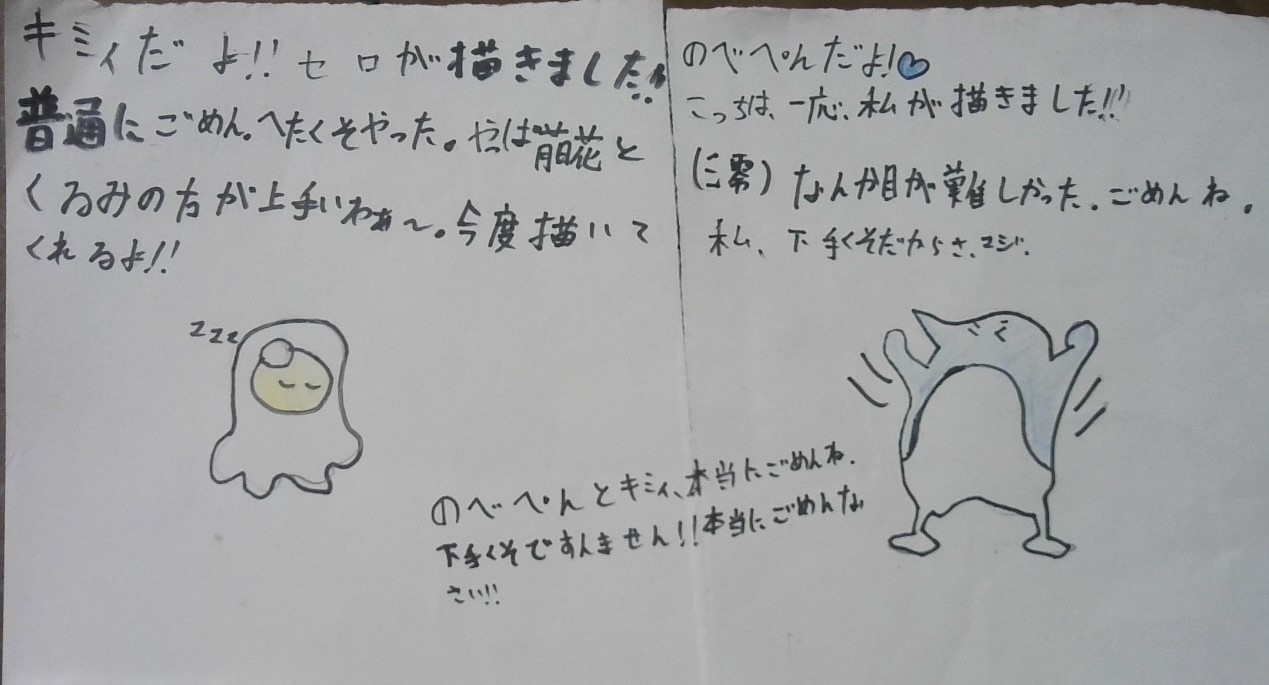 キミィだよ!! セロが描きました!!
普通にごめん。へたくそやった。やっぱ萌花と
くるみの方が上手いわぁ〜。今度描いて
くれるよ!!
のべぺんだよ!♡
こっちは、一応、私が描きました!!
なんか目が難しかった。ごめんね。
私、下手くそだからさ、マジ。
zzz
のべぺんとキミィ、本当にごめんね.
下手くそですんません!!本当にごめんな
さい!!